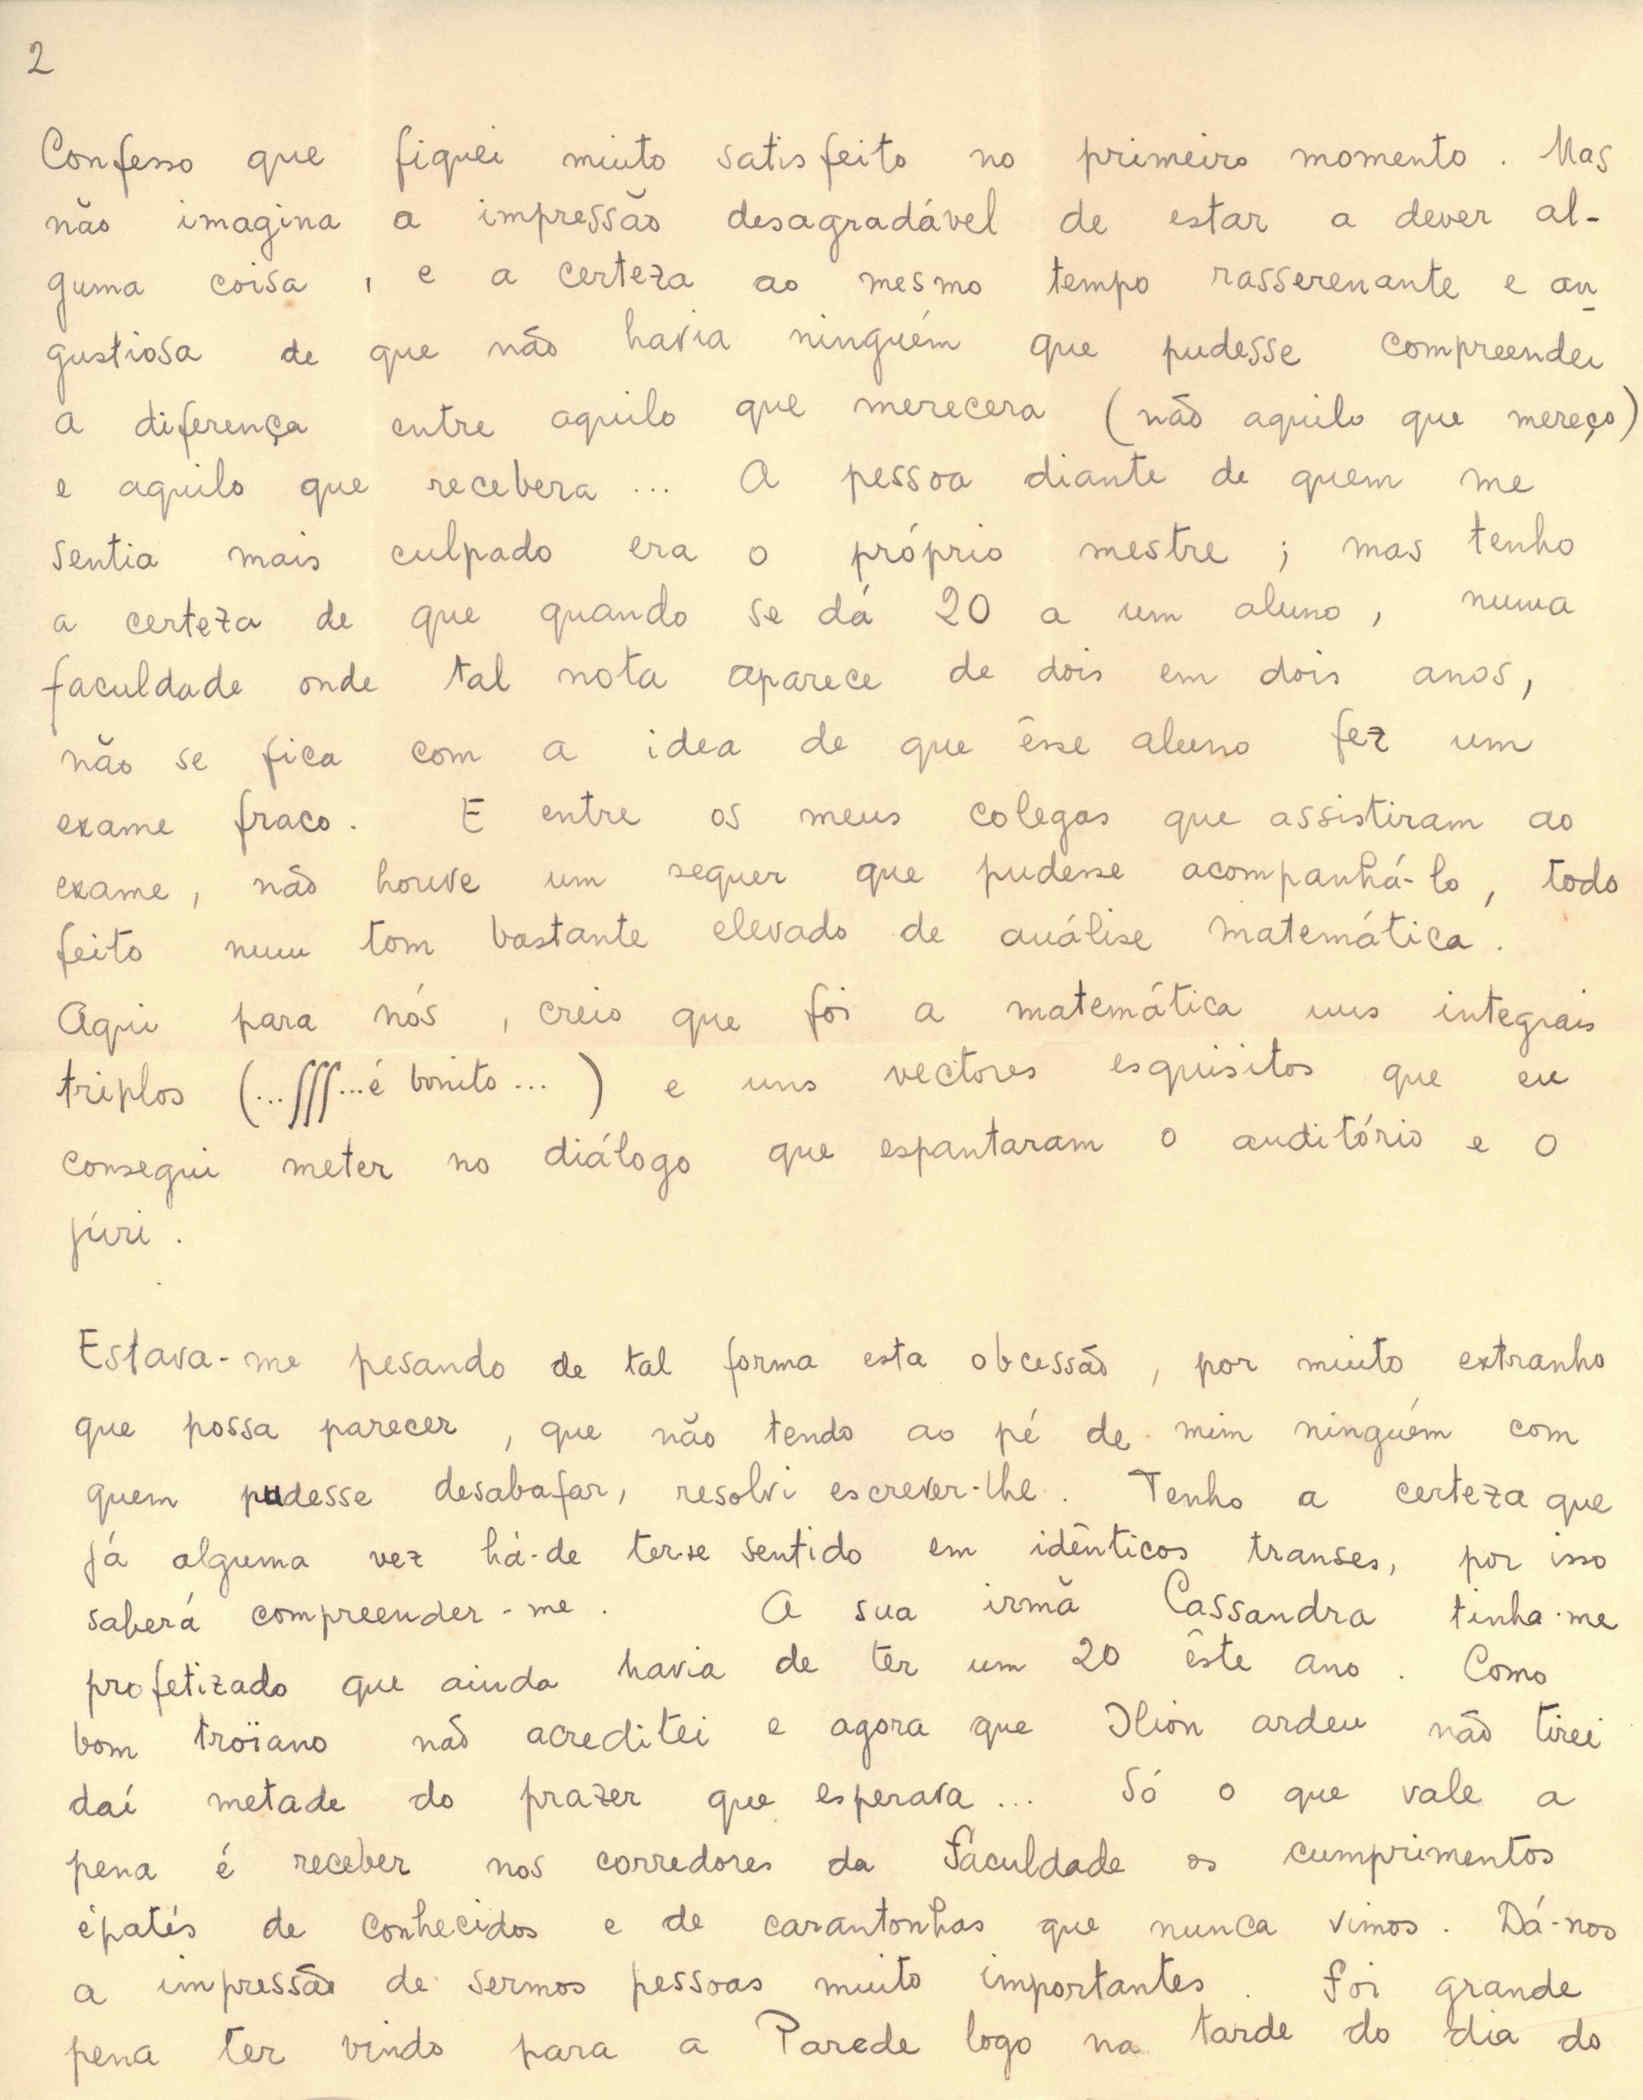 2
Confesso que fiquei muito satisfeito no primeiro momento. Mas
não imagina a impressão desagradável de estar a dever al-
guma coisa, e a certeza ao mesmo tempo rasserenante e an
gustiosa de que não havia ninguém que pudesse compreender
a diferença entre aquilo que merecera (não aquilo que mereço)
e aquilo que recebera... A pessoa diante de quem me
sentia mais culpado era o próprio mestre; mas tenho
a certeza de que quando se dá 20 a um aluno, numa
faculdade onde tal nota aparece de dois em dois anos,
não se fica com a idea de que êsse aluno fez um
exame fraco. E entre os meus colegas que assistiram ao
exame, não houve um sequer que pudesse acompanhá-lo, todo
feito num tom bastante elevado de análise matemática.
Aqui para nós, creio que foi a matemática uns integrais
triplos (...∫∫∫...é bonito...) e uns vectores esquisitos que eu
consegui meter no diálogo que espantaram o auditório e o
júri.
Estava-me pesando de tal forma esta obcessão, por muito extranho
que possa parecer, que não tendo ao pé de mim ninguém com
quem pudesse desabafar, resolvi escrever-lhe. Tenho a certeza que
já alguma vez há-de ter-se sentido em idênticos transes, por isso
saberá compreender-me. A sua irmã Cassandra tinha-me
profetizado que ainda havia de ter um 20 êste ano. Como
bom troïano não acreditei e agora que Ilion ardeu não tirei
daí metade do prazer que esperava... Só o que vale a
pena é receber nos corredores da Faculdade os cumprimentos
épatés de conhecidos e de carantonhas que nunca vimos. Dá-nos
a impressão de sermos pessoas muito importantes. Foi grande
pena ter vindo para a Parede logo na tarde do dia do